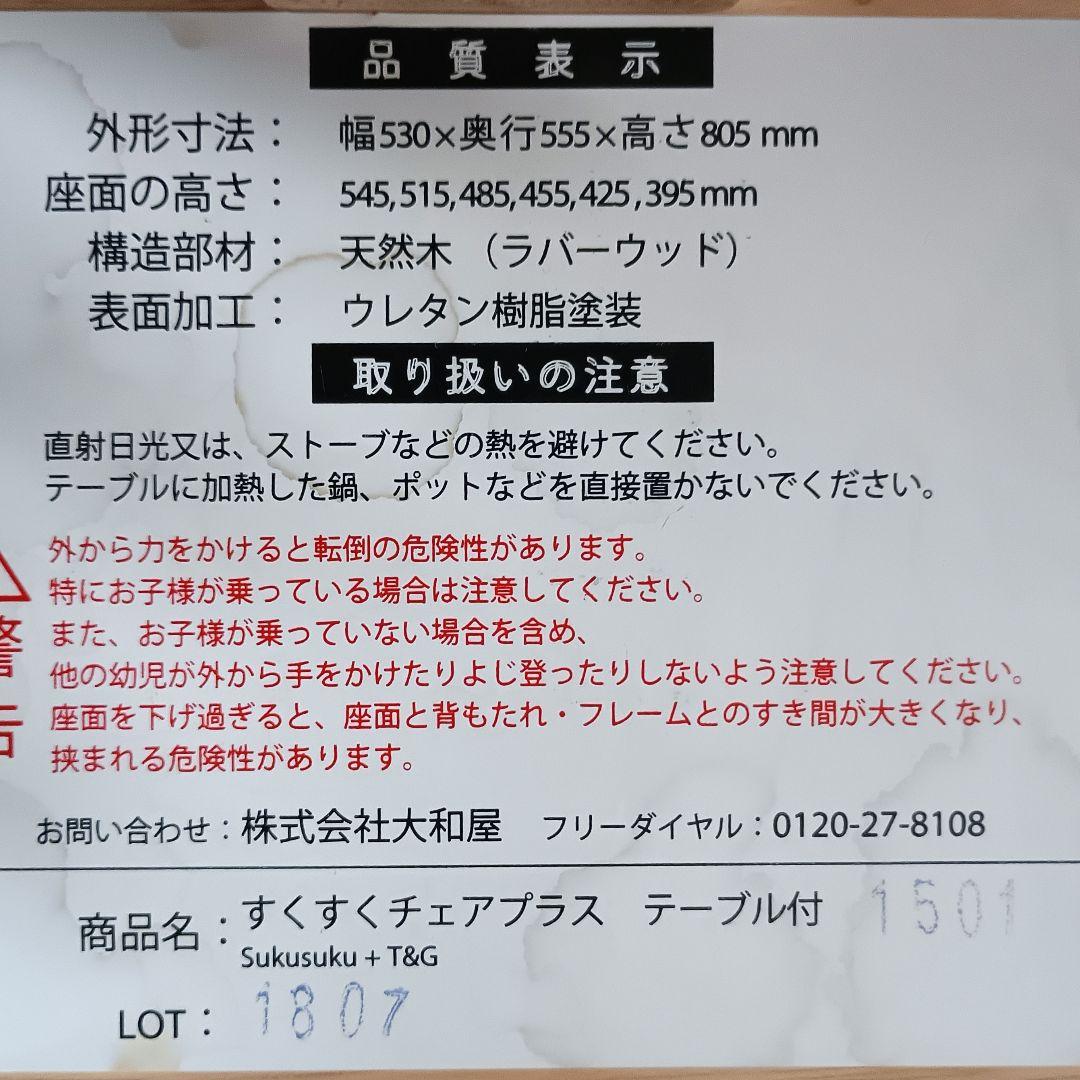 品質表示
外形寸法： 幅530×奥行555×高さ805 mm
座面の高さ： 545,515,485,455,425,395mm
構造部材： 天然木 （ラバーウッド）
表面加工： ウレタン樹脂塗装
取り扱いの注意
直射日光又は、ストーブなどの熱を避けてください。
テーブルに加熱した鍋、ポットなどを直接置かないでください。
警告
外から力をかけると転倒の危険性があります。
特にお子様が乗っている場合は注意してください。
また、お子様が乗っていない場合を含め、
他の幼児が外から手をかけたりよじ登ったりしないよう注意してください。
座面を下げ過ぎると、座面と背もたれ・フレームとのすき間が大きくなり、
挟まれる危険性があります。
お問い合わせ：株式会社大和屋 フリーダイヤル：0120-27-8108
商品名：すくすくチェアプラス テーブル付 1501
Sukusuku + T&G
LOT： 1807